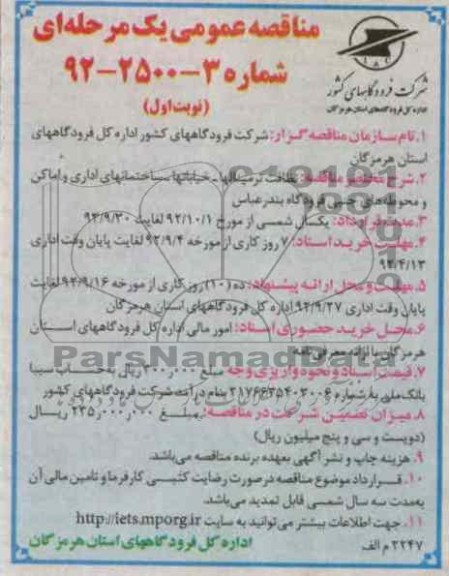 مناقصه عمومی یک مرحله‌ای
شماره ۳-۲۵۰۰-۹۲
(نوبت اول)
شرکت فرودگاههای کشور
اداره کل فرودگاههای استان هرمزگان
۱.نام سازمان مناقصه گزار: شرکت فرودگاههای کشور اداره کل فرودگاههای
استان هرمزگان
۲.شرح مختصر مناقصه: نظافت ترمینالها ـ خیابانها ـ ساختمانهای اداری و اماکن
و محوطه‌های جنبی فرودگاه بندرعباس
۳.مدت قرارداد: یکسال شمسی از مورخ ۹۲/۱۰/۱ لغایت ۹۳/۹/۳۰
۴.مهلت خرید اسناد: ۷ روز کاری از مورخه ۹۲/۹/۴ لغایت پایان وقت اداری
۹۲/۹/۱۳
۵.مهلت و محل ارائه پیشنهاد: ده (۱۰) روز کاری از مورخه ۹۲/۹/۱۶ لغایت
پایان وقت اداری ۹۲/۹/۲۷ اداره کل فرودگاههای استان هرمزگان
۶.محل خرید حضوری اسناد: امور مالی اداره کل فرودگاههای استان
هرمزگان با ارائه معرفی نامه
۷.قیمت اسناد و نحوه واریزی وجه مبلغ ۳۰۰٫۰۰۰ ریال به حساب سیبا
بانک ملی به شماره ۲۱۷۶۶۳۵۴۰۲۰۰۶ بنام درآمد شرکت فرودگاههای کشور
۸.میزان تضمین شرکت در مناقصه: مبلغ ۲۳۵٫۰۰۰٫۰۰۰ ریال
(دویست و سی و پنج میلیون ریال)
۹. هزینه چاپ و نشر آگهی بعهده برنده مناقصه می‌باشد.
۱۰. قرارداد موضوع مناقصه در صورت رضایت کتبی کارفرما و تامین مالی آن
به مدت سه سال شمسی قابل تمدید می‌باشد.
۱۱. جهت اطلاعات بیشتر می‌توانید به سایت http://iets.mporg.ir
۲۲۴۷ م الف
اداره کل فرودگاههای استان هرمزگان
ParsNamadData